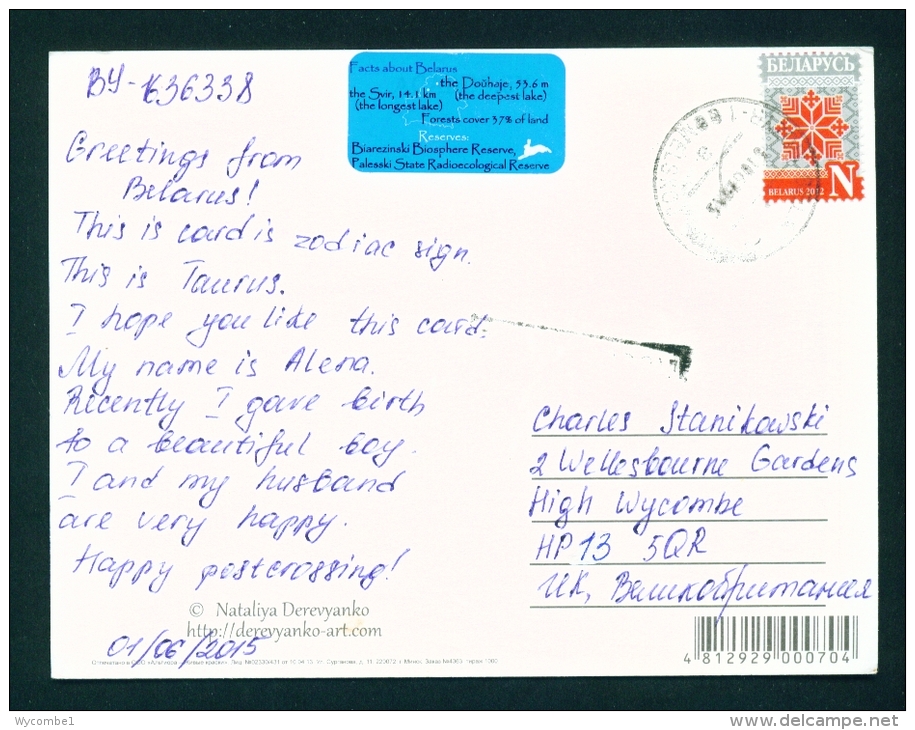 BY-1636338
Facts about Belarus
the Doŭhaje, 53.6 m
the Svir, 14.1 km (the deepest lake)
(the longest lake)
Forests cover 37% of land
Reserves:
Biarezinski Biosphere Reserve,
Palesski State Radioecological Reserve
БЕЛАРУСЬ
BELARUS 2012 N
Greetings from
Belarus!
This is card is zodiac sign.
This is Taurus.
I hope you like this card.
My name is Alena.
Recently I gave birth
to a beautiful boy.
I and my husband
are very happy.
Happy postcrossing!
© Nataliya Derevyanko
http://derevyanko-art.com
01/06/2015
Charles Stanikowski
2 Wellesbourne Gardens
High Wycombe
HP13 5QR
UK, Великобритания
4 812929 000704
Wycombe1
www.delcampe.net